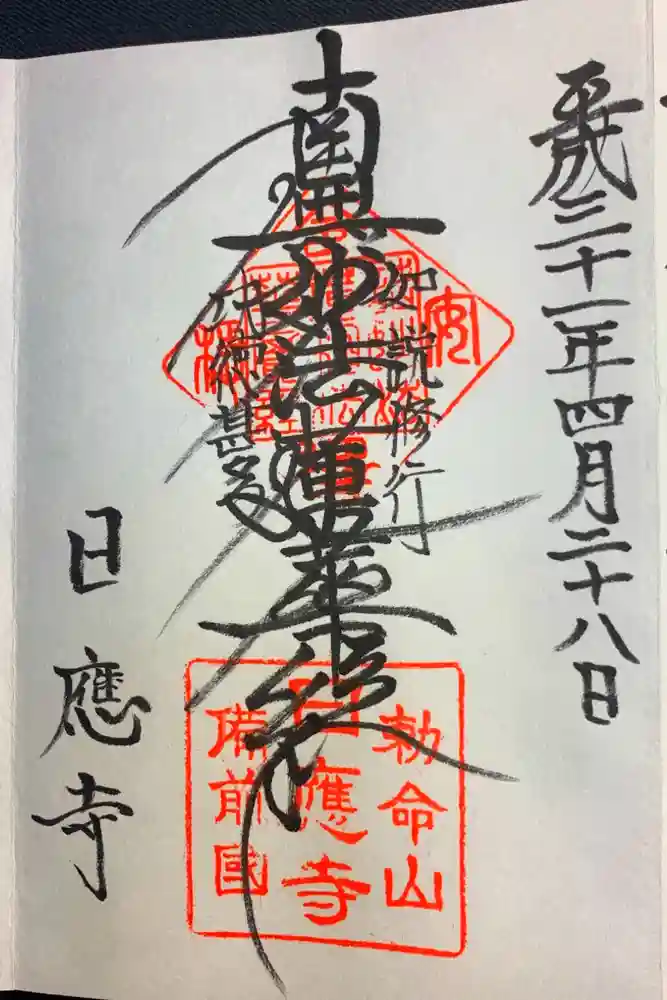 平成三十一年四月二十八日
如説修行
南無妙法蓮華経
功徳甚多
日應寺
勅命山
日應寺
備前國